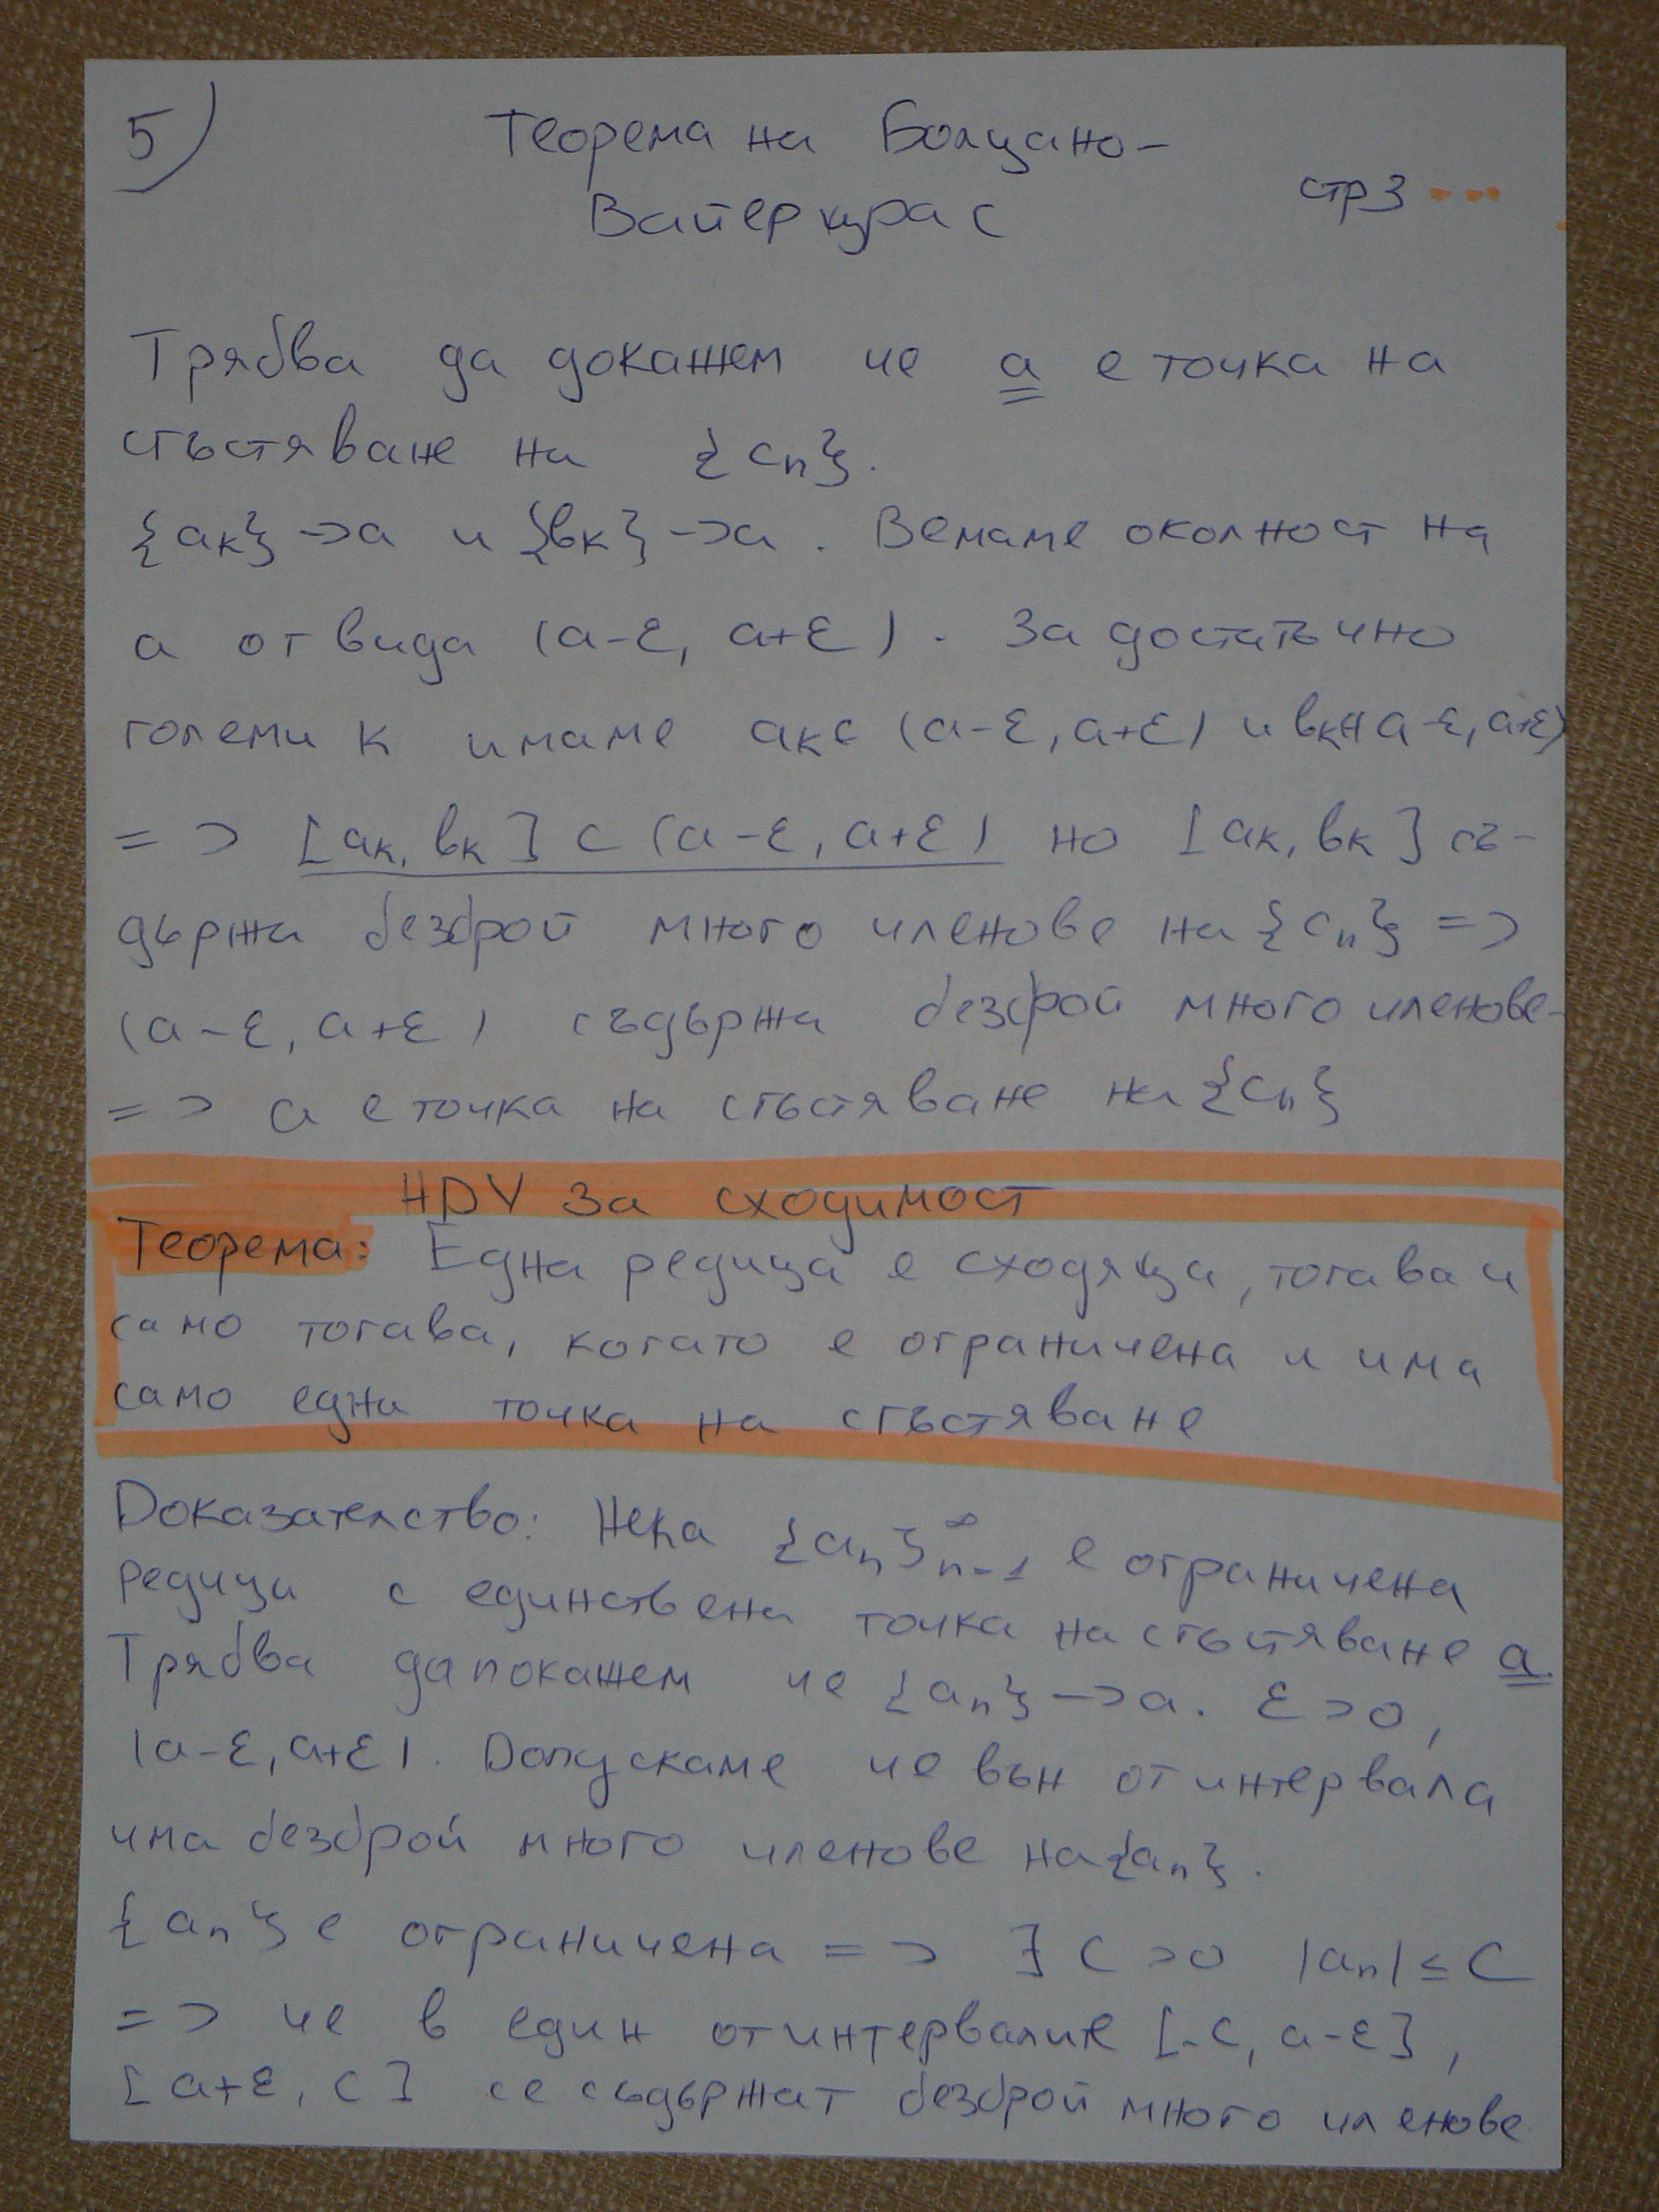 5) Теорема на Болцано-
Вайерщрас стр 3
Трябва да докажем че a е точка на
сгъстяване на {cn}.
{aк} -> a и {вк} -> a. Вемаме околност на
a от вида (a-ε, a+ε). За достатъчно
големи к имаме aк ∈ (a-ε, a+ε) и вк ∈ (a-ε, a+ε)
=> [aк, вк] ⊂ (a-ε, a+ε) но [aк, вк] съ-
държа безброй много членове на {cn} =>
(a-ε, a+ε) съдържа безброй много членове-
=> a е точка на сгъстяване на {cn}
НДУ за сходимост
Теорема: Една редица е сходяща, тогава и
само тогава, когато е ограничена и има
само една точка на сгъстяване
Доказателство: Нека {an}∞n=1 е ограничена
редица с единствена точка на сгъстяване a.
Трябва да покажем че {an} -> a. ε > 0,
(a-ε, a+ε). Допускаме че вън от интервала
има безброй много членове на {an}.
{an} е ограничена => ∃ C > 0 |an| ≤ C
=> че в един от интервалите [-C, a-ε],
[a+ε, C] се съдържат безброй много членове